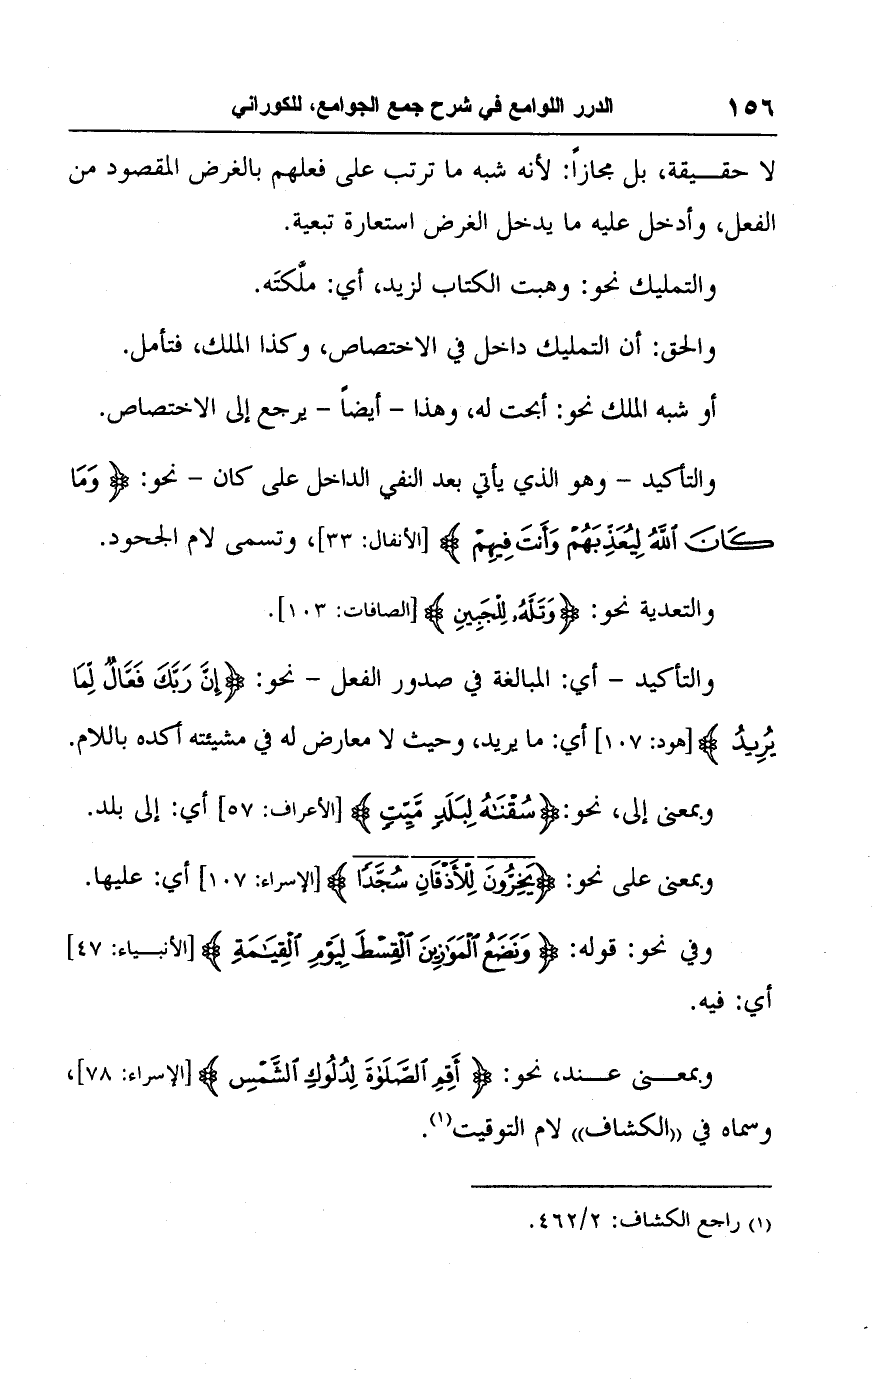 ١٥٦ الدرر اللوامع في شرح جمع الجوامع، للكوراني
لا حقـــيقة، بل مجازاً: لأنه شبه ما ترتب على فعلهم بالغرض المقصود من
الفعل، وأدخل عليه ما يدخل الغرض استعارة تبعية.
والتمليك نحو: وهبت الكتاب لزيد، أي: ملَّكتَه.
والحق: أن التمليك داخل في الاختصاص، وكذا الملك، فتأمل.
أو شبه الملك نحو: أبحت له، وهذا – أيضاً – يرجع إلى الاختصاص.
والتأكيد – وهو الذي يأتي بعد النفي الداخل على كان – نحو: ﴿ وَمَا
كَانَ ٱللَّهُ لِيُعَذِّبَهُمْ وَأَنتَ فِيهِمْ ﴾ [الأنفال: ٣٣]، وتسمى لام الجحود.
والتعدية نحو: ﴿ وَتَلَّهُۥ لِلْجَبِينِ ﴾ [الصافات: ١٠٣].
والتأكيد – أي: المبالغة في صدور الفعل – نحو: ﴿ إِنَّ رَبَّكَ فَعَّالٌ لِّمَا
يُرِيدُ ﴾ [هود: ١٠٧] أي: ما يريد، وحيث لا معارض له في مشيئته أكده باللام.
وبمعنى إلى، نحو: ﴿ سُقْنَـٰهُ لِبَلَدٍ مَّيِّتٍ ﴾ [الأعراف: ٥٧] أي: إلى بلد.
وبمعنى على نحو: ﴿ يَخِرُّونَ لِلْأَذْقَانِ سُجَّدًا ﴾ [الإسراء: ١٠٧] أي: عليها.
وفي نحو: قوله: ﴿ وَنَضَعُ ٱلْمَوَٰزِينَ ٱلْقِسْطَ لِيَوْمِ ٱلْقِيَـٰمَةِ ﴾ [الأنبـــياء: ٤٧]
أي: فيه.
وبمعـــنى عـــند، نحو: ﴿ أَقِمِ ٱلصَّلَوٰةَ لِدُلُوكِ ٱلشَّمْسِ ﴾ [الإسراء: ٧٨]،
وسماه في ((الكشاف)) لام التوقيت(١).
(١) راجع الكشاف: ٤٦٢/٢.